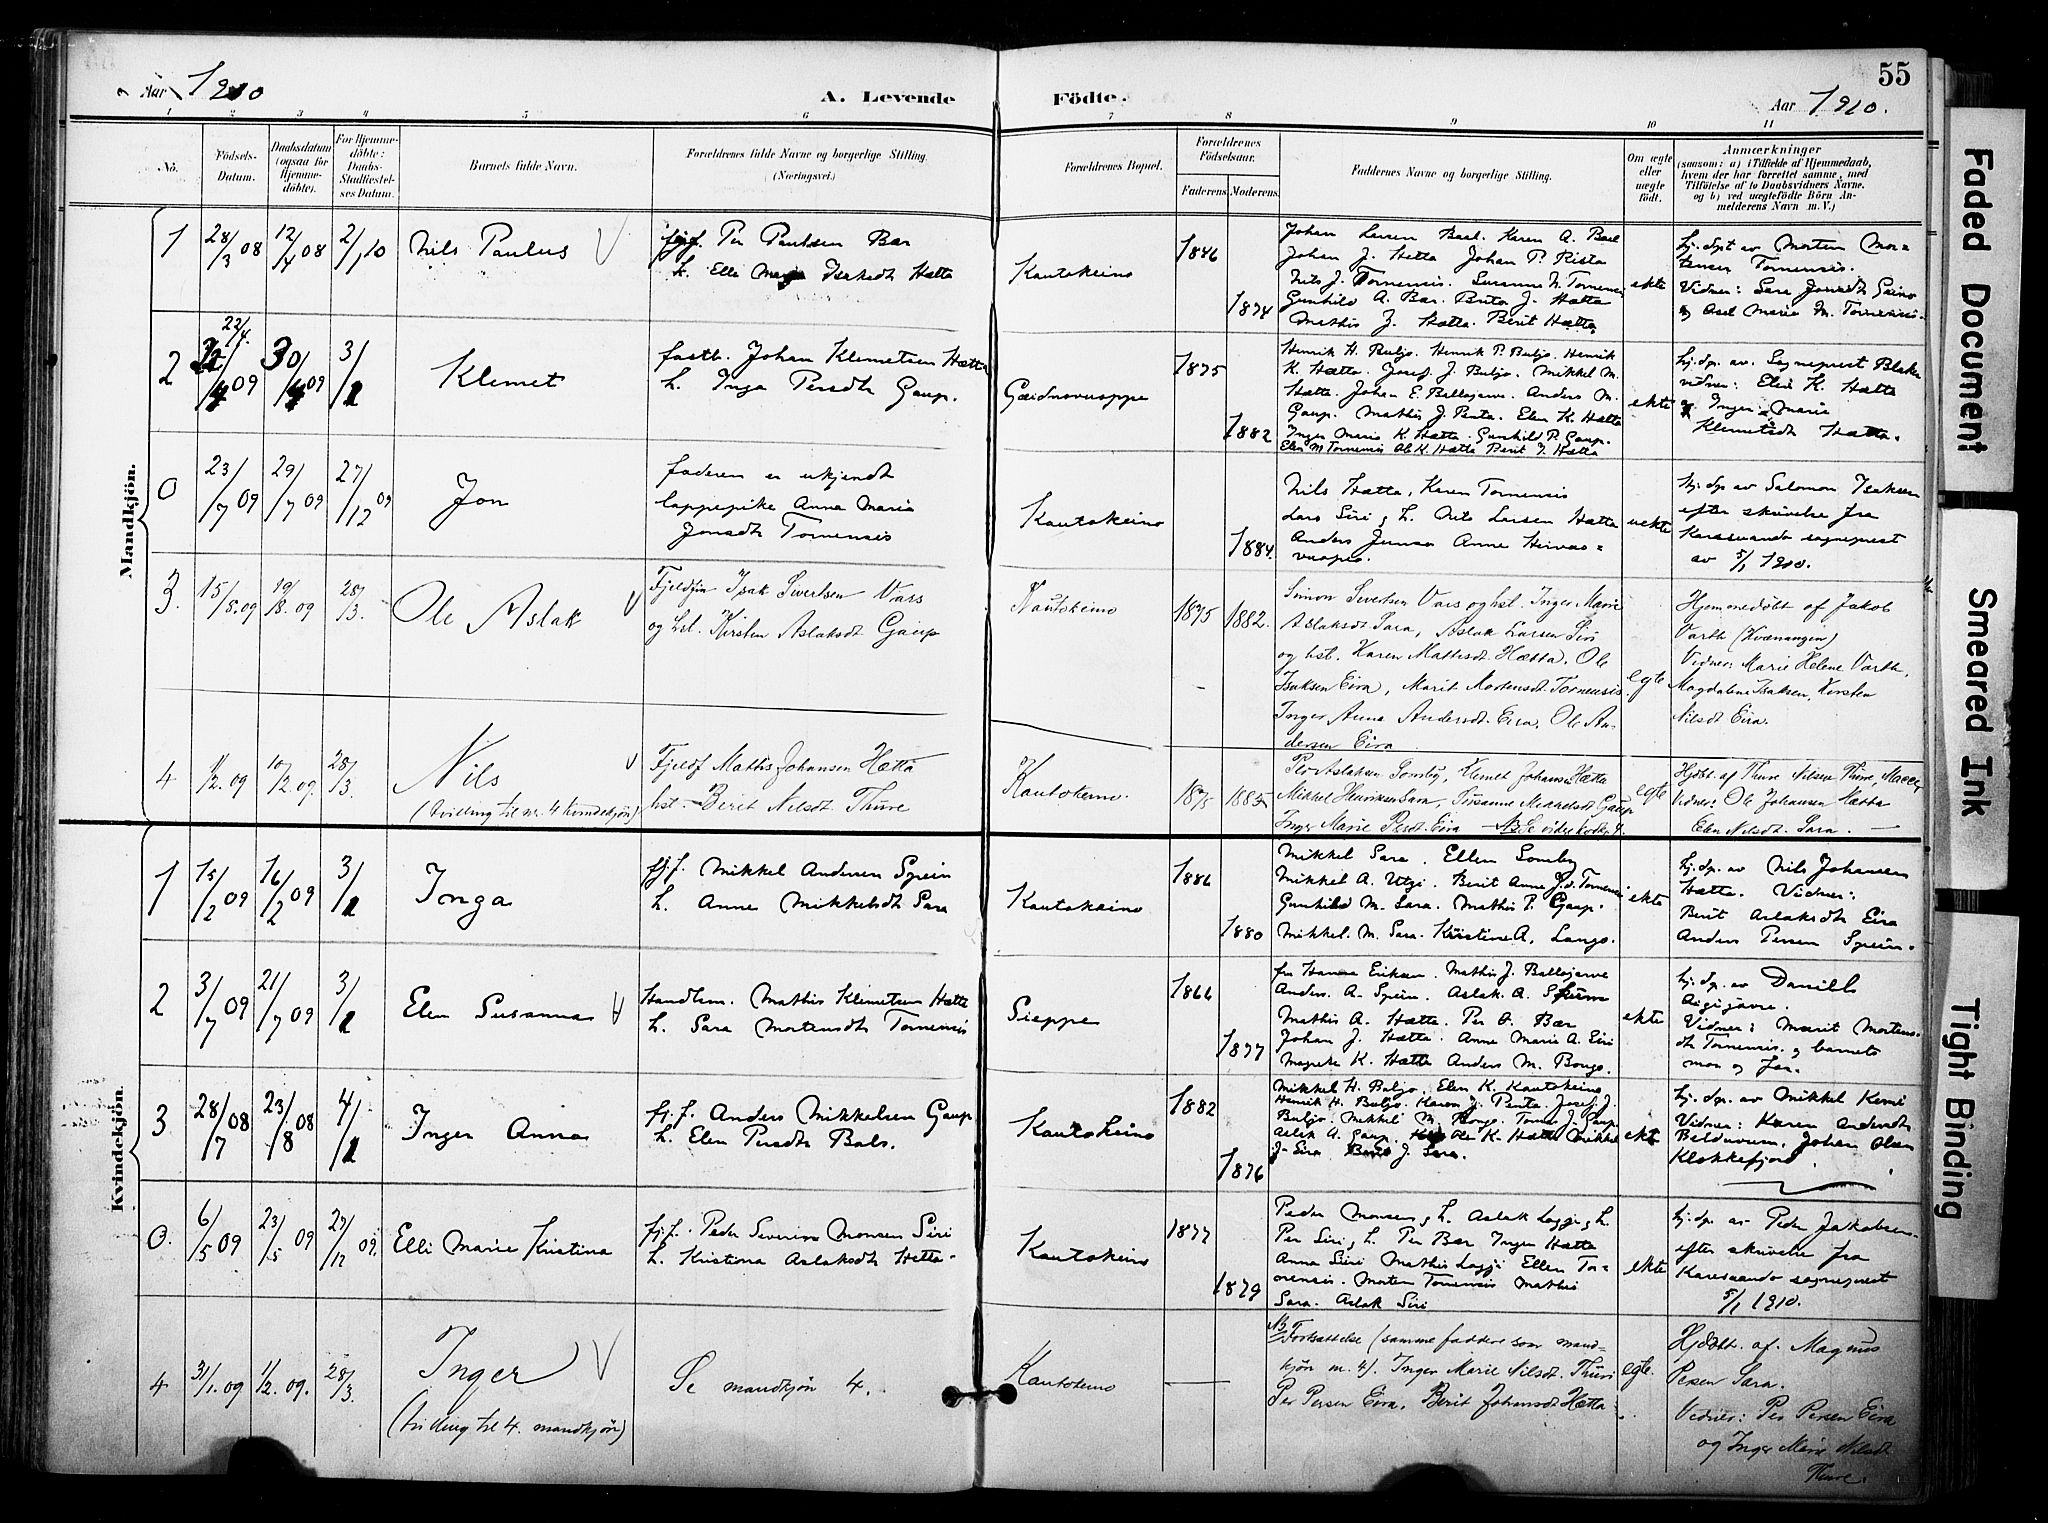 Aar 1910
A. Levende
Födte.
Aar 1910.
55
1 2 3 4 5 6 7 8 9 10 11
No.
Födsels-
Datum.
Daabsdatum
(ogsaa for
Hjemme-
döbte).
For Hjemme-
döbte:
Daabs-
Stadfæstel-
ses Datum.
Barnets fulde Navn.
Forældrenes fulde Navne og borgerlige Stilling.
(Næringsvei.)
Forældrenes Bopæl.
Forældrenes
Födselsaar.
Faderens. Moderens.
Faddernes Navne og borgerlige Stilling.
Om ægte
eller
uægte
født.
Anmærkninger
(saasom: a) i Tilfælde af Hjemmedaab,
hvem der har forrettet samme, med
Tilföielse af to Daabsvidners Navne,
og b) ved uægtefödte Börn An-
melderens Navn m. V.)
Mandkjön.
1 28/3 08 12/4 08 2/1 10 Nils Paulus
fjf. Per Paulsen Bær
h. Elli Marja Isaksdt Hætta
Kautokeino
1846
1874
Johan Larsen Baal. Karen A. Baal
Johan J. Hætta Johan P. Rista
Nils J. Tornensis. Susanne N. Tornensis
Gunhild A. Bær. Brita J. Hætta
Mathis J. Hætta. Berit Hætta.
ekte
hj. dpt av Morten Mor-
tensen Tornensis.
Vidner: Sara Jonsdt Gaino
og Asel Marie M. Tornensis.
2 22/4 09 30/4 09 3/1 Klemet
fastb. Johan Klemetsen Hætta
h. Inga Persdt Gaup.
Gæidnovuoppe
1875
1882
Henrik H. Buljo. Henrik P. Buljo. Henrik
K. Hætta. Josef J. Buljo. Mikkel M.
Hætta. Johan E. Ballojarve. Anders M.
Gaup. Mathis J. Penta. Elen K. Hætta
Inger Marie K. Hætta. Gunhild P. Gaup.
Elen M Tornensis Ole K. Hætta Berit J. Hætta
ekte
hj. dp. av. Sognepræst Blake
vidner: Elen K. Hætta
og Inger Marie
Klemetsdt Hætta.
0 23/7 09 29/7 09 27/12 09 Jon
faderen er ukjendt
lappepike Anna Maria
Jonsdt Tornensis
Kautokeino
1884.
Nils Hætta, Karen Tornensis
Lars Siri og h. Nils Larsen Hætta
Anders Junso Anne Hirvas=
vuopio.
uekte
hj. dp av Salomon Isaksen
efter skrivelse fra
Karesuando sogneprest
av 5/1 1910.
3. 15/8.09 19/8.09 28/3. Ole Aslak
Fjeldfin Isak Sivertsen Vars
og hst. Kirsten Aslaksdt Gaup
Kautokeino
1875 1882.
Simon Sivertsen Vars og hst. Inger Marie
Aslaksdt Sara, Aslak Larsen Siri
og hst. Karen Mattisdt. Hætta. Ole
Isaksen Eira, Marit Mortensdt Tornensis
Inger Anna Andersdt. Eira, Ole An-
dersen Eira
egte
Hjemmedøbt af Jakob
Varth (Kvænangen)
Vidner: Marie Helene Varth,
Magdalene Isaksen, Kirsten
Nilsdt Eira.
4 1/2.09 10/2.09. 28/3. Nils
(tvilling til nr. 4 kvindekjøn)
Fjeldf Mattis Johansen Hætta
hst. Berit Nilsdt Thure
Kautokeino.
1875 1885
Per Aslaksen Somby, Klemet Johansen Hætta
Mikkel Henriksen Sara, Susanne Mikkelsdt Gaup
Inger Marie Persdt. Eira NB Se videre kvdkj. 4.
egte
Hjdbt. af Thure Nilsen Thure, Maccer,
Vidner: Ole Johansen Hætta
Elen Nilsdt. Sara.
Kvindekjön.
1 15/2 09 16/2 09 3/1 Inga
fj.f. Mikkel Andersen Spein
h. Anne Mikkelsdt Sara
Kautokeino
1886
1880
Mikkel Sara. Ellen Somby
Mikkel A. Utsi. Berit Anne J.d. Tornensis
Gunhild M. Sara. Mathis P. Gaup.
Mikkel. M. Sara. Kristine A. Lango.
ekte
hj. dp. av Nils Johansen
Hætta. Vidner:
Berit Aslaksdt Eira
Anders Persen Spein.
2 3/7 09 21/7 09 3/1 Elen Susanna
Handlsm. Mathis Klemetsen Hætta
h. Sara Mortensdt Tornensis
Sieppe
1866
1877
fru Hanna Eriksen. Mathis J. Ballojarve
Anders. A. Spein. Aslak. A. Spein
Mathis A. Hætta. Per O. Bær
Johan J. Hætta. Anne Marie A. Eiri
Magrete K. Hætta Anders M. Bongo.
ekte
hj. dp. av Daniell
Aigijavre.
Vidner: Marit Mortens-
dt Tornensis. og barnets
mor og far.
3 28/7 08 23/8 08 4/1 Inger Anna
fj.f. Anders Mikkelsen Gaup
h. Elen Persdt Bals.
Kautokeino
1882
1876
Mikkel H. Buljo. Elen K. Kautokeino
Henrik H. Buljo. Karen J. Penta. Josef J.
Buljo. Mikkel M. Bongo. Tomas J. Gaup.
Aslak A. Gaup. Ole K. Hætta Mikkel
J. Eira Berit J. Sara.
ekte
hj. dp. av Mikkel Kemi
Vidner: Karen Andersdt
Beldovuom, Johan Olsen
Klokkefjord.
0. 6/5 09 23/5 09 27/12 09. Elli Marie Kristina
fj.f. Peder Severin Monsen Siri
h. Kristiana Aslaksdt Hætta.
Kautokeino
1877
1879
Peder Monsen og h. Aslak Logje og h.
Per Siri og h. Per Bær Inger Hætta
Anna Siri Mathis Logje Ellen Tor=
nensis. Morten Tornensis Mathis
Sara. Aslak Siri
ekte
hj. dp. av Peder Jakobsen
efter skrivelse fra
Karesuando sogneprest
5/1 1910.
4 31/1.09 1/2.09. 28/3. Inger
(tvilling til 4. mandkjøn)
Se mandkjøn 4.
Kautokeino
NB Fortsættelse (samme faddere som mand-
kjøn nr. 4). Inger Marie Nilsdt. Thuri
Per Persen Eira, Berit Johansdt Hætta
egte.
Hjdbt. af. Magnus
Persen Sara.
Vidner: Per Persen Eira
og Inger Marie Nilsdt.
Thure.
Faded Document
Smeared Ink
Tight Binding